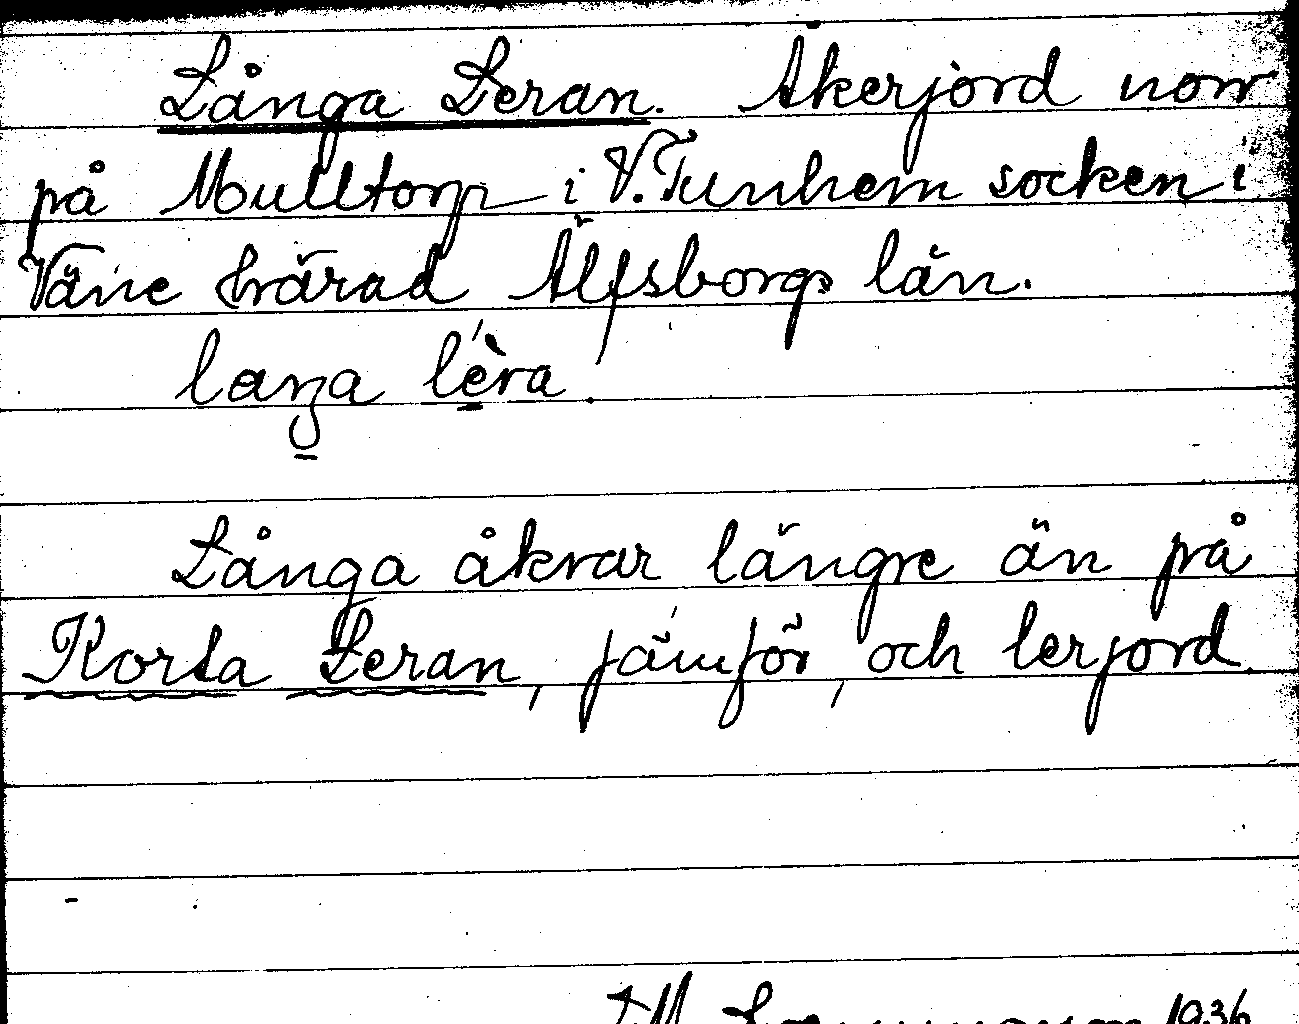 Långa Leran. Åkerjord norr
på Mulltorp i V. Tunhem socken i
Väne härad Älfsborgs län.
laŋa lèra
Långa åkrar längre än på
Korta Leran, jämför, och lerjord.
1936